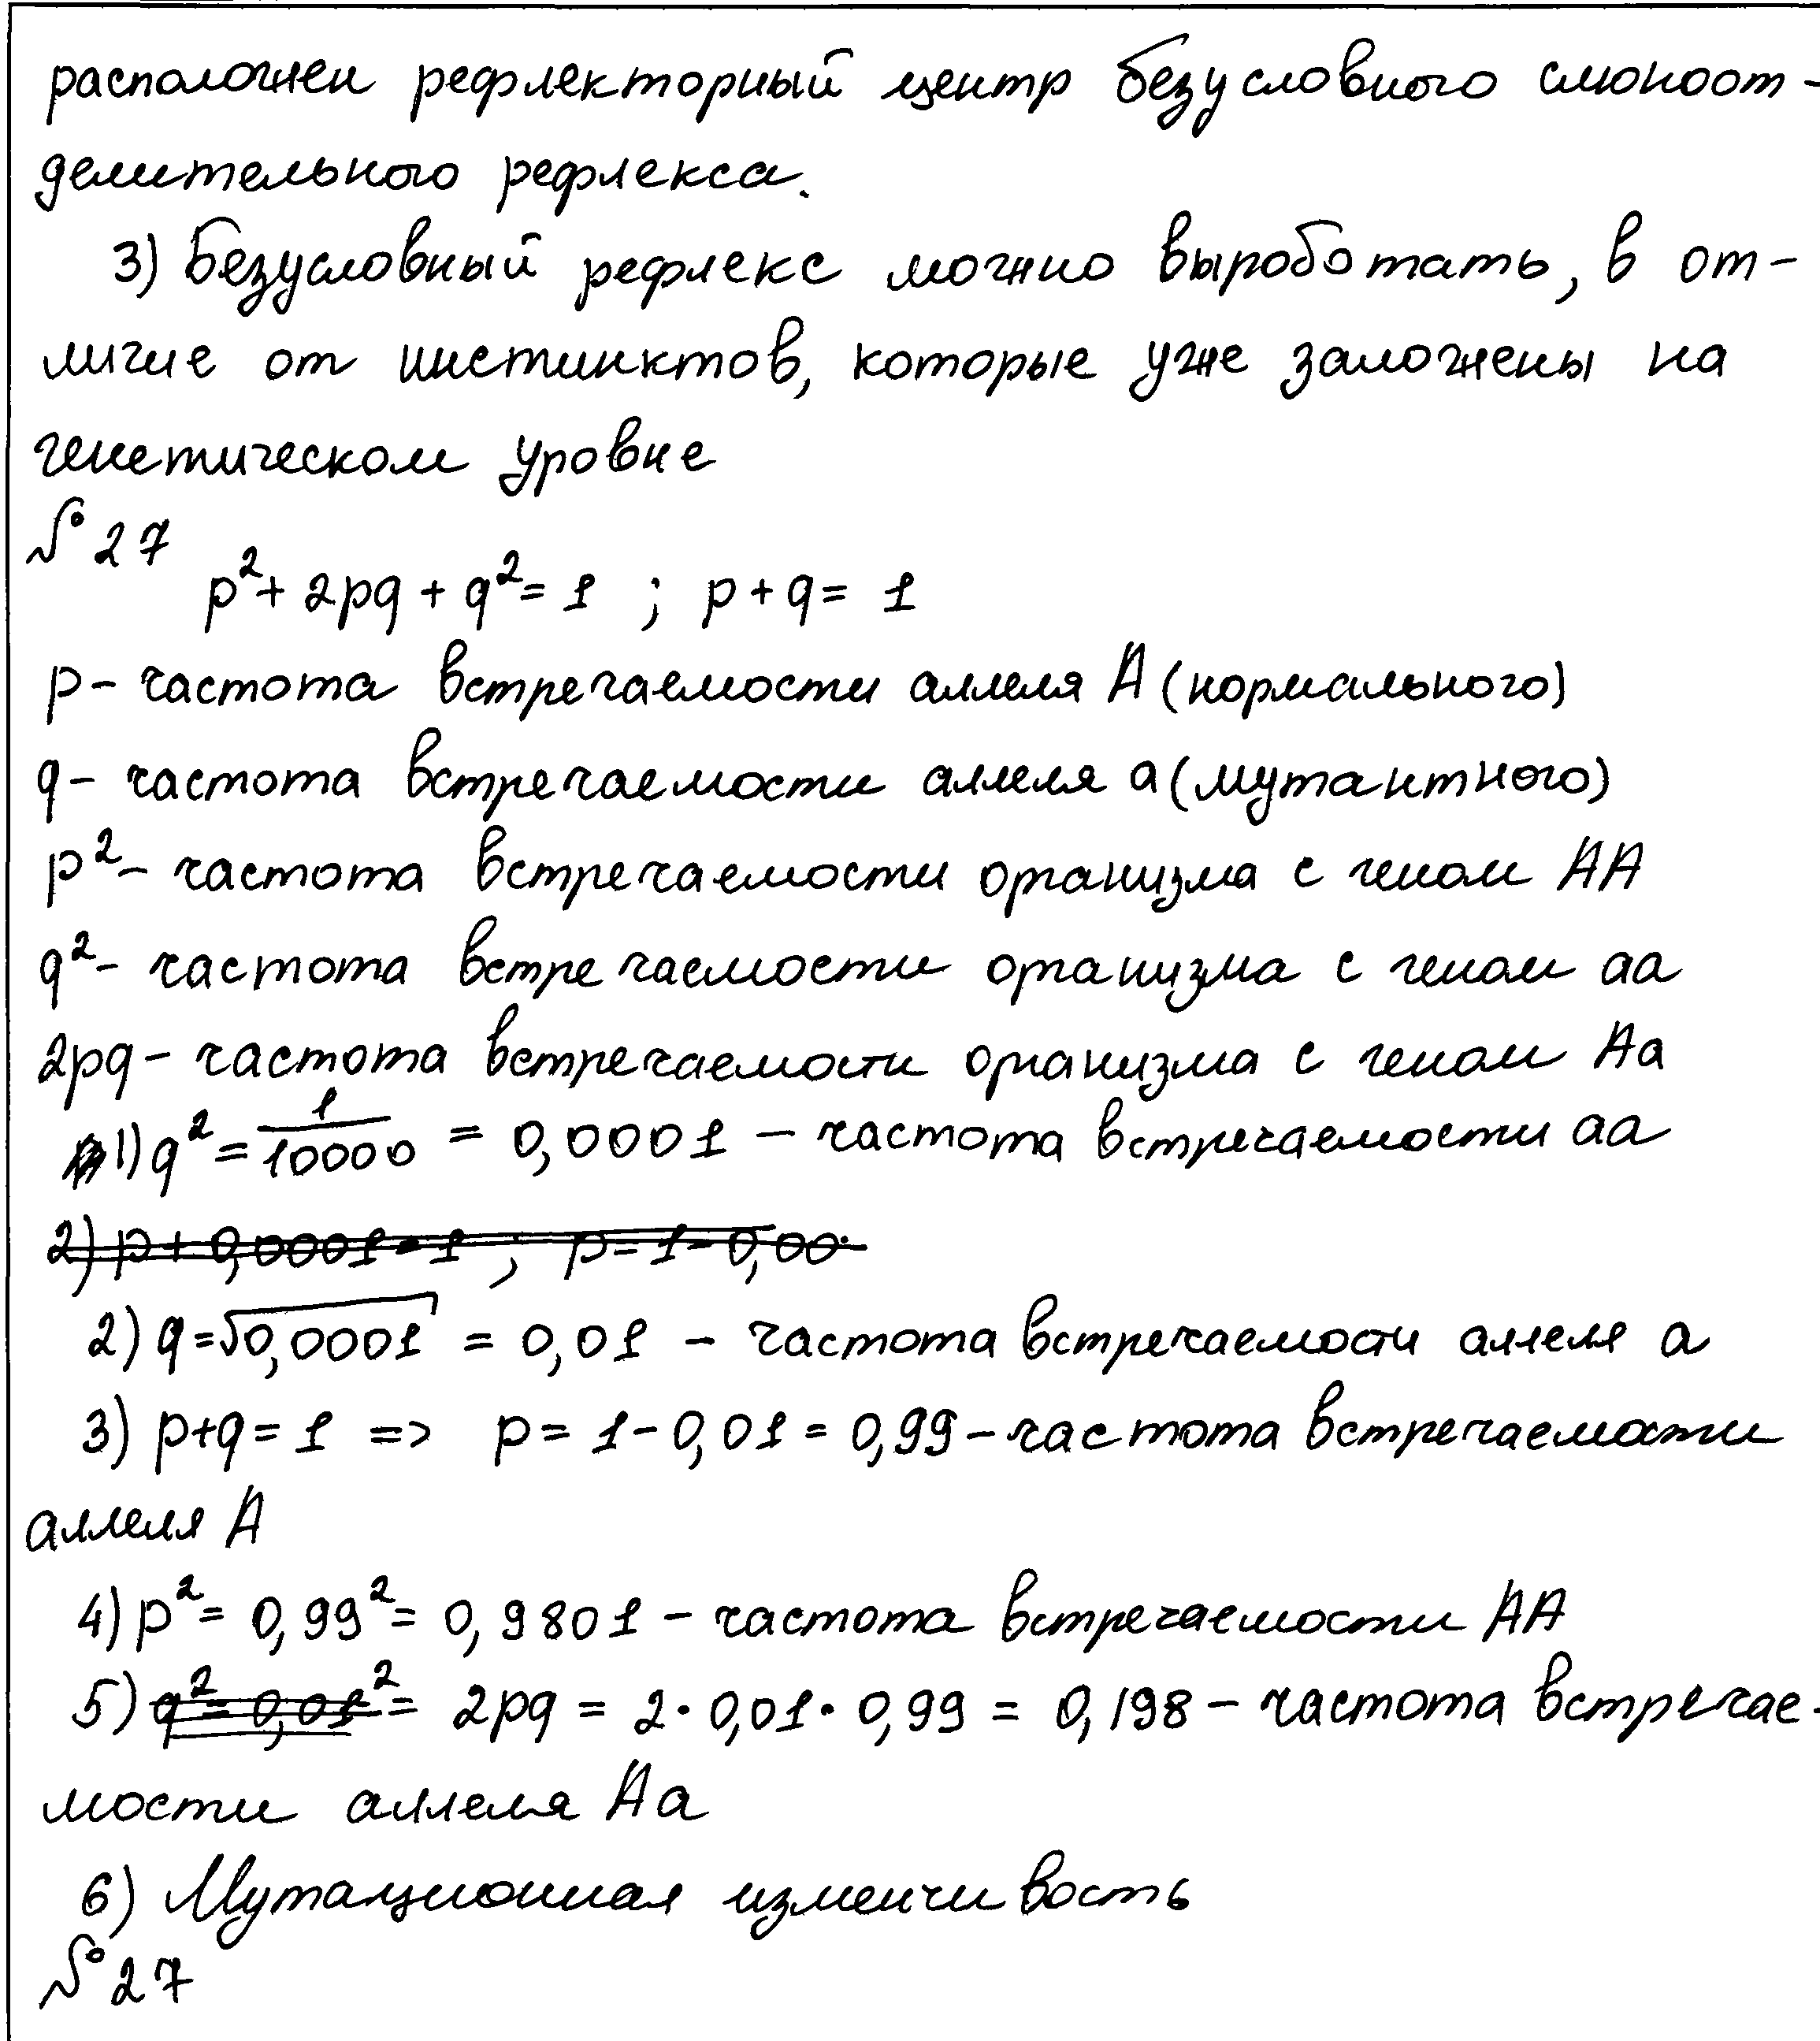 расположен рефлекторный центр безусловного слюноот-
делительного рефлекса.
3) Безусловный рефлекс можно выроботать, в от-
личие от инстинктов, которые уже заложены на
генетическом уровне
№ 27
p² + 2pq + q² = 1 ; p + q = 1
p - частота встречаемости аллеля A (нормального)
q - частота встречаемости аллеля a (мутантного)
p² - частота встречаемости организма с геном AA
q² - частота встречаемости организма с геном aa
2pq - частота встречаемости организма с геном Aa
1) q² = 1/10000 = 0,0001 - частота встречаемости aa
2) p + 0,0001 = 1 ; p = 1 - 0,00
2) q = √0,0001 = 0,01 - частота встречаемости аллеля a
3) p+q = 1 => p = 1 - 0,01 = 0,99 - частота встречаемости
аллеля A
4) p² = 0,99² = 0,9801 - частота встречаемости AA
5) q² = 0,01² = 2pq = 2 · 0,01 · 0,99 = 0,198 - частота встречае-
мости аллеля Aa
6) Мутационная изменчивость
№ 27